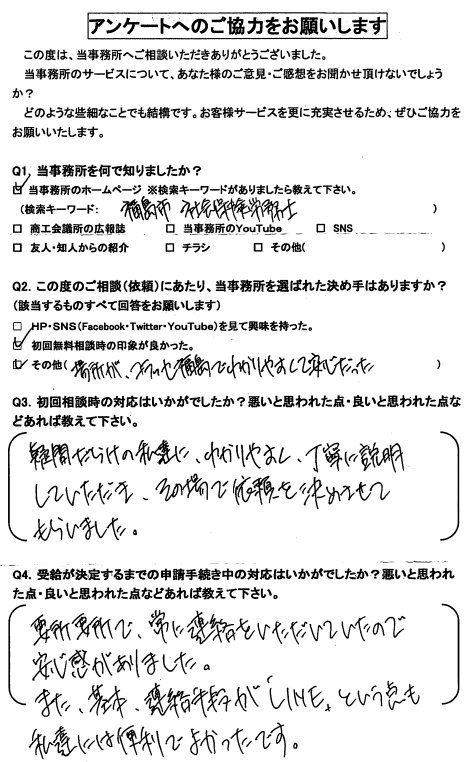 アンケートへのご協力をお願いします
この度は、当事務所へご相談いただきありがとうございました。
当事務所のサービスについて、あなた様のご意見・ご感想をお聞かせ頂けないでしょう
か？
どのような些細なことでも結構です。お客様サービスを更に充実させるため、ぜひご協力を
お願いいたします。
Q1．当事務所を何で知りましたか？
☑ 当事務所のホームページ ※検索キーワードがありましたら教えて下さい。
（検索キーワード： 福島市 社会保険労務士 ）
□ 商工会議所の広報誌 □ 当事務所のYouTube □ SNS
□ 友人・知人からの紹介 □ チラシ □ その他( )
Q2．この度のご相談（依頼）にあたり、当事務所を選ばれた決め手はありますか？
（該当するものすべて回答をお願いします）
□ HP・SNS（Facebook・Twitter・YouTube）を見て興味を持った。
☑ 初回無料相談時の印象が良かった。
☑ その他( 場所が、コラッセ福島でわかりやすくて安心だった )
Q3．初回相談時の対応はいかがでしたか？悪いと思われた点・良いと思われた点な
どあれば教えて下さい。
疑問だらけの私達に、わかりやすく、丁寧に説明
していただき、その場で依頼を決めさせて
もらいました。
Q4．受給が決定するまでの申請手続き中の対応はいかがでしたか？悪いと思われ
た点・良いと思われた点などあれば教えて下さい。
要所要所で、常に連絡をいただいていたので
安心感がありました。
また、基本、連絡手段が「LINE」という点も
私達には便利でよかったです。